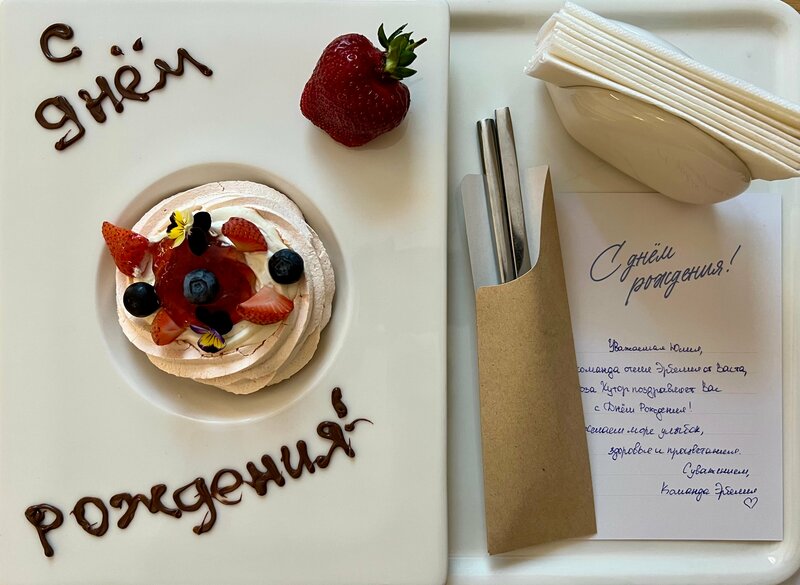 С
днём
рождения!
С днём
рождения!
Уважаемая Юлия,
команда отеля Эрбелия от Васта,
Роза Хутор поздравляет Вас
с Днём Рождения!
Желаем море улыбок,
здоровья и процветания.
С уважением,
Команда Эрбелия